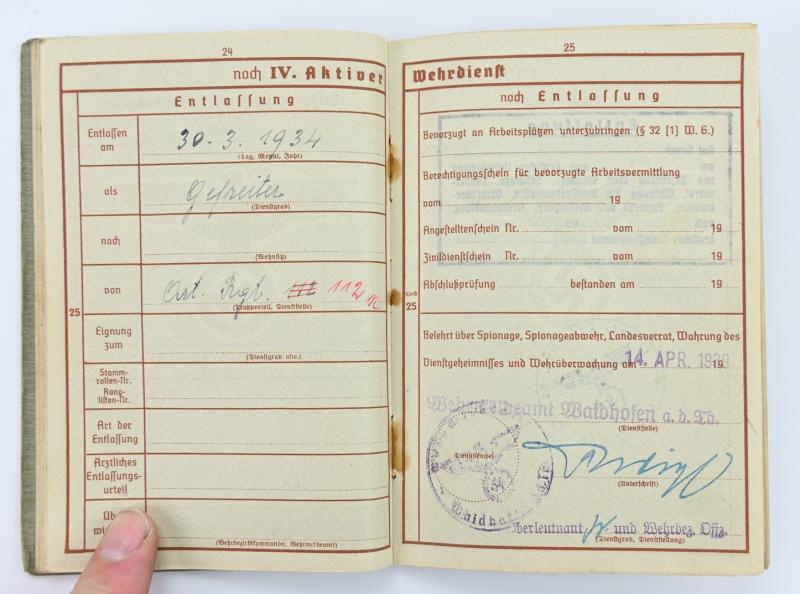 24
noch IV. Aktiver
Entlassung
Entlassen am
30. 3. 1934
(Tag, Monat, Jahr)
als
Gefreiter
(Dienstgrad)
nach
(Wohnsitz)
von
Art. Rgt. 112
(Truppenteil, Dienststelle)
25
Eignung zum
(Dienstgrad usw.)
Stamm-
rollen-Nr.
Rang-
listen-Nr.
Art der
Entlassung
Ärztliches
Entlassungs-
urteil
(Wehrbezirkskommando, Wehrmeldeamt)
25
Wehrdienst
noch Entlassung
Bevorzugt an Arbeitsplätzen unterzubringen (§ 32 [1] W. G.)
Berechtigungschein für bevorzugte Arbeitsvermittlung
vom 19
Angestelltenschein Nr. vom 19
Zivildienstschein Nr. vom 19
Abschlußprüfung bestanden am 19
noch
25
Belehrt über Spionage, Spionageabwehr, Landesverrat, Wahrung des
Dienstgeheimnisses und Wehrüberwachung am 14. APR. 1939 19
Wehrmeldeamt Waidhofen a. d. Th.
(Dienststelle)
(Dienstsiegel)
(Unterschrift)
Waidhofen
Oberleutnant und Wehrbez. Offz.
(Dienstgrad, Dienststellung)